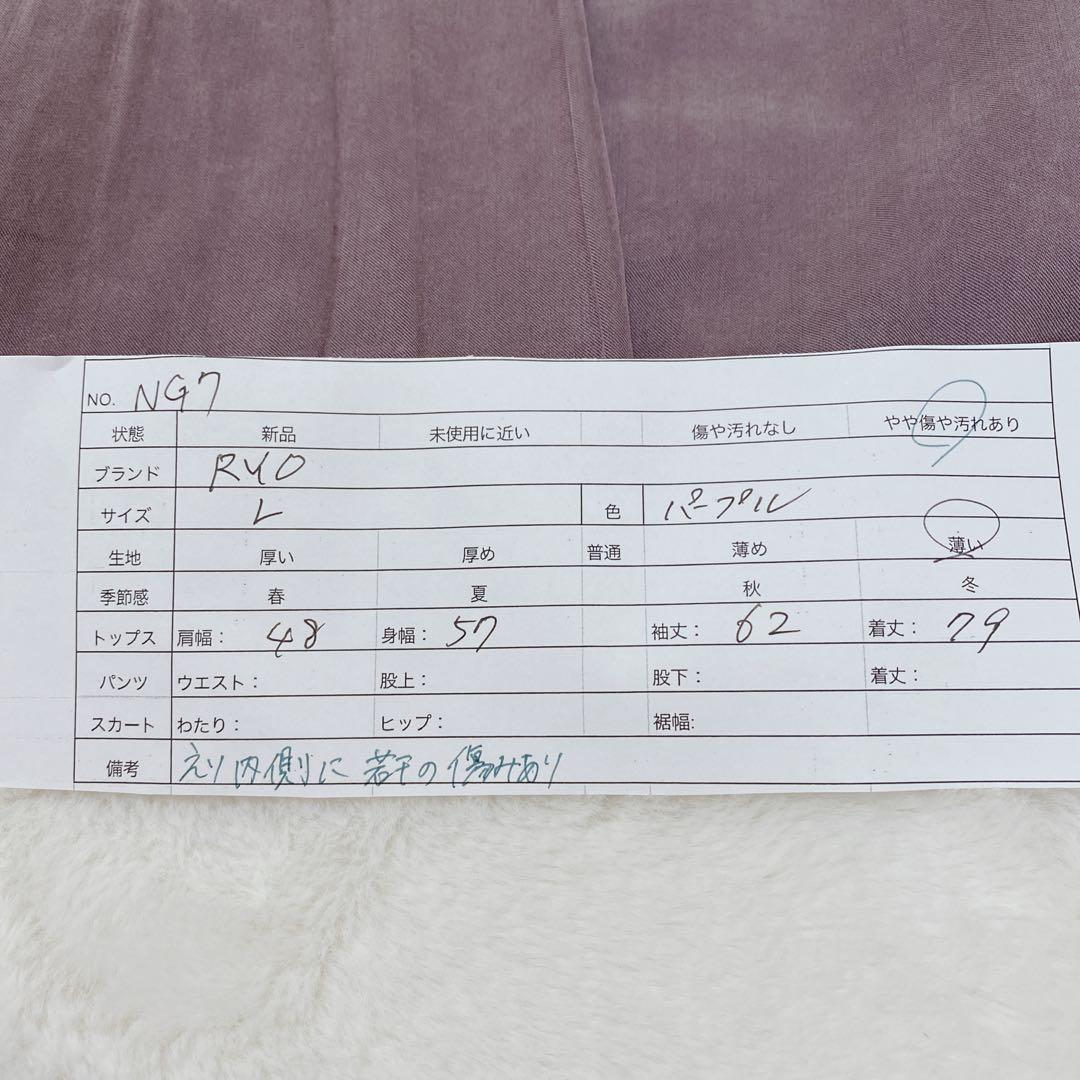 NO. NG7
状態 新品 未使用に近い 傷や汚れなし やや傷や汚れあり
ブランド RYO
サイズ L 色 パープル
生地 厚い 厚め 普通 薄め 薄い
季節感 春 夏 秋 冬
トップス 肩幅: 48 身幅: 57 袖丈: 62 着丈: 79
パンツ ウエスト: 股上: 股下: 着丈:
スカート わたり: ヒップ: 裾幅:
備考 えり内側に若干の傷みあり